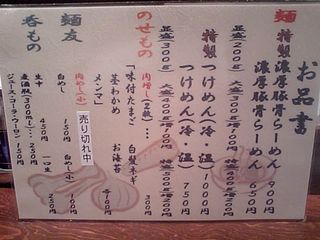 お品書
麺
特製 濃厚豚骨らーめん 900円
濃厚豚骨らーめん 650円
並盛(200g) 大盛(300g)100円 特盛(400g)200円
特製 つけめん(冷・温) 1000円
つけめん(冷・温) 750円
並盛(300g) 大盛(400g)100円 特盛(500g)200円
のせもの
肉増し(2枚)… 300円
味付たまご 白髪ネギ
茎わかめ お海苔
メンマ 各100円
麺友
肉めし(小) 150円 売り切れ中
白めし 150円 白めし(小) 100円
呑もの
生中 450円 一口生 250円
ジュース・コーラ・ウーロン 150円